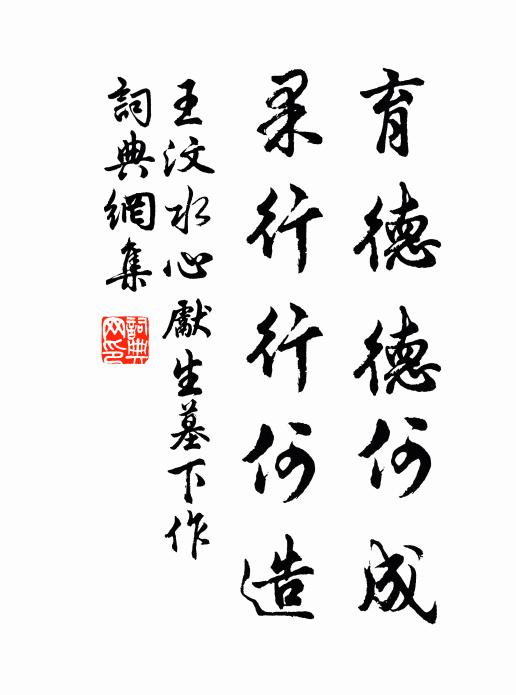 育德德何成
果行行何造
王汶水心獻生墓下作
詞典網集
詞典网印